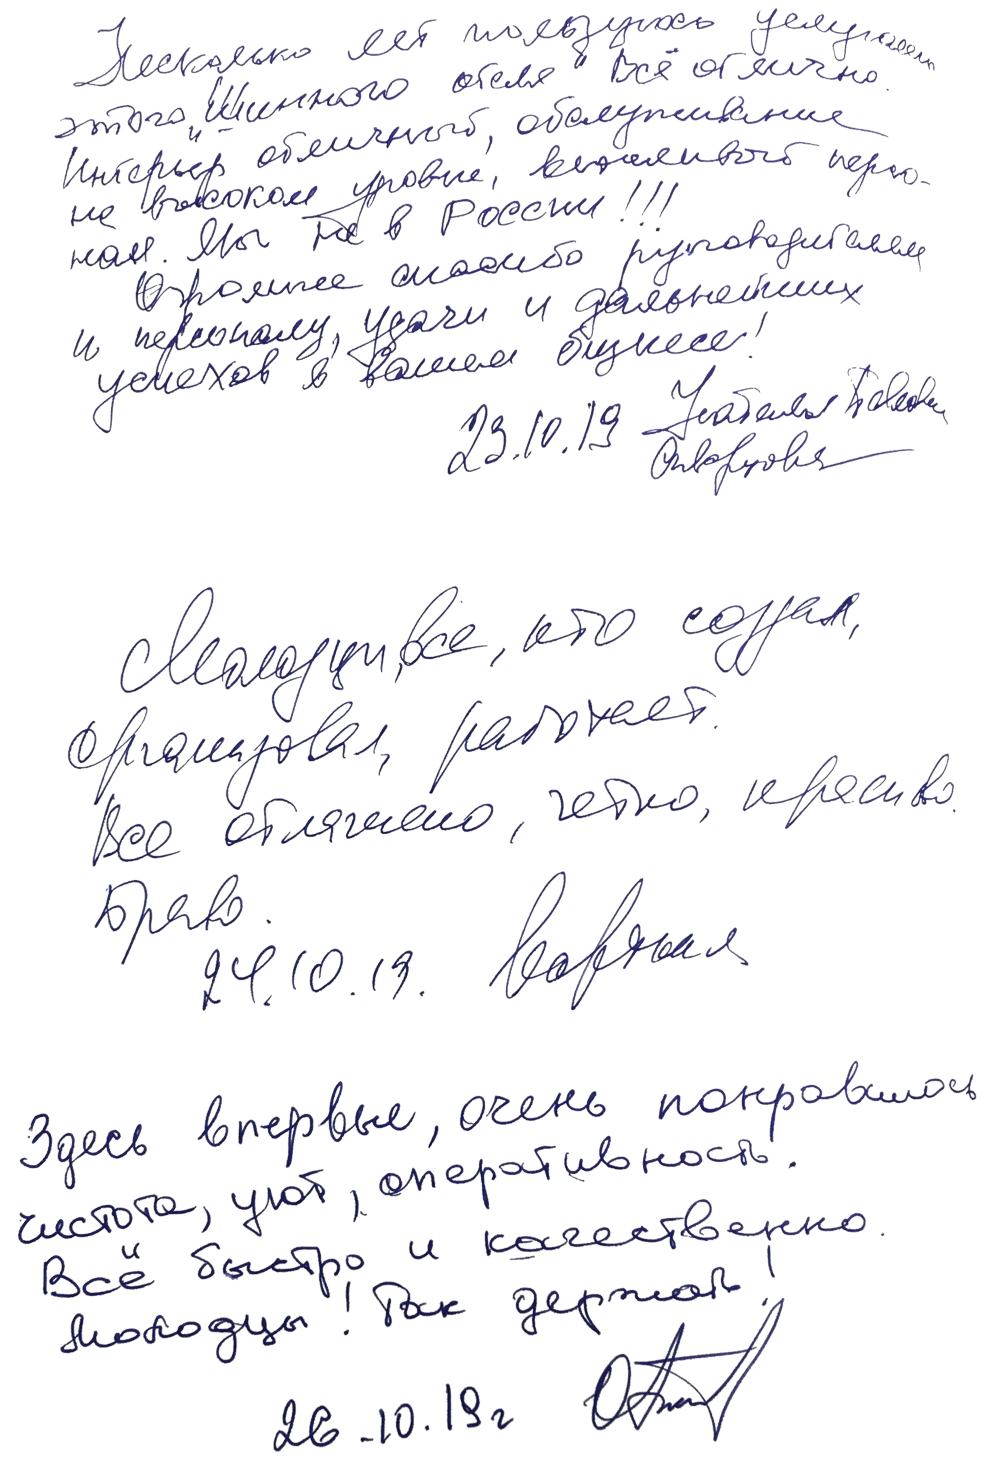 Несколько лет пользуюсь услугами
этого „Шинного отеля“ Всё отлично.
Интерьер отличный, обслуживание
на высоком уровне, вежливый персо-
нал. Мы не в России!!!
Огромное спасибо руководителям
и персоналу, удачи и дальнейших
успехов в вашем бизнесе!
23.10.19 Наталья Павловна
Скворцова
Молодцы, все, кто создал,
организовал, работает.
Все отлажено, четко, красиво.
Браво.
24.10.19.
Здесь впервые, очень понравилось
чистота, уют, оперативность.
Всё быстро и качественно.
Молодцы! Так держать!
26.10.19г